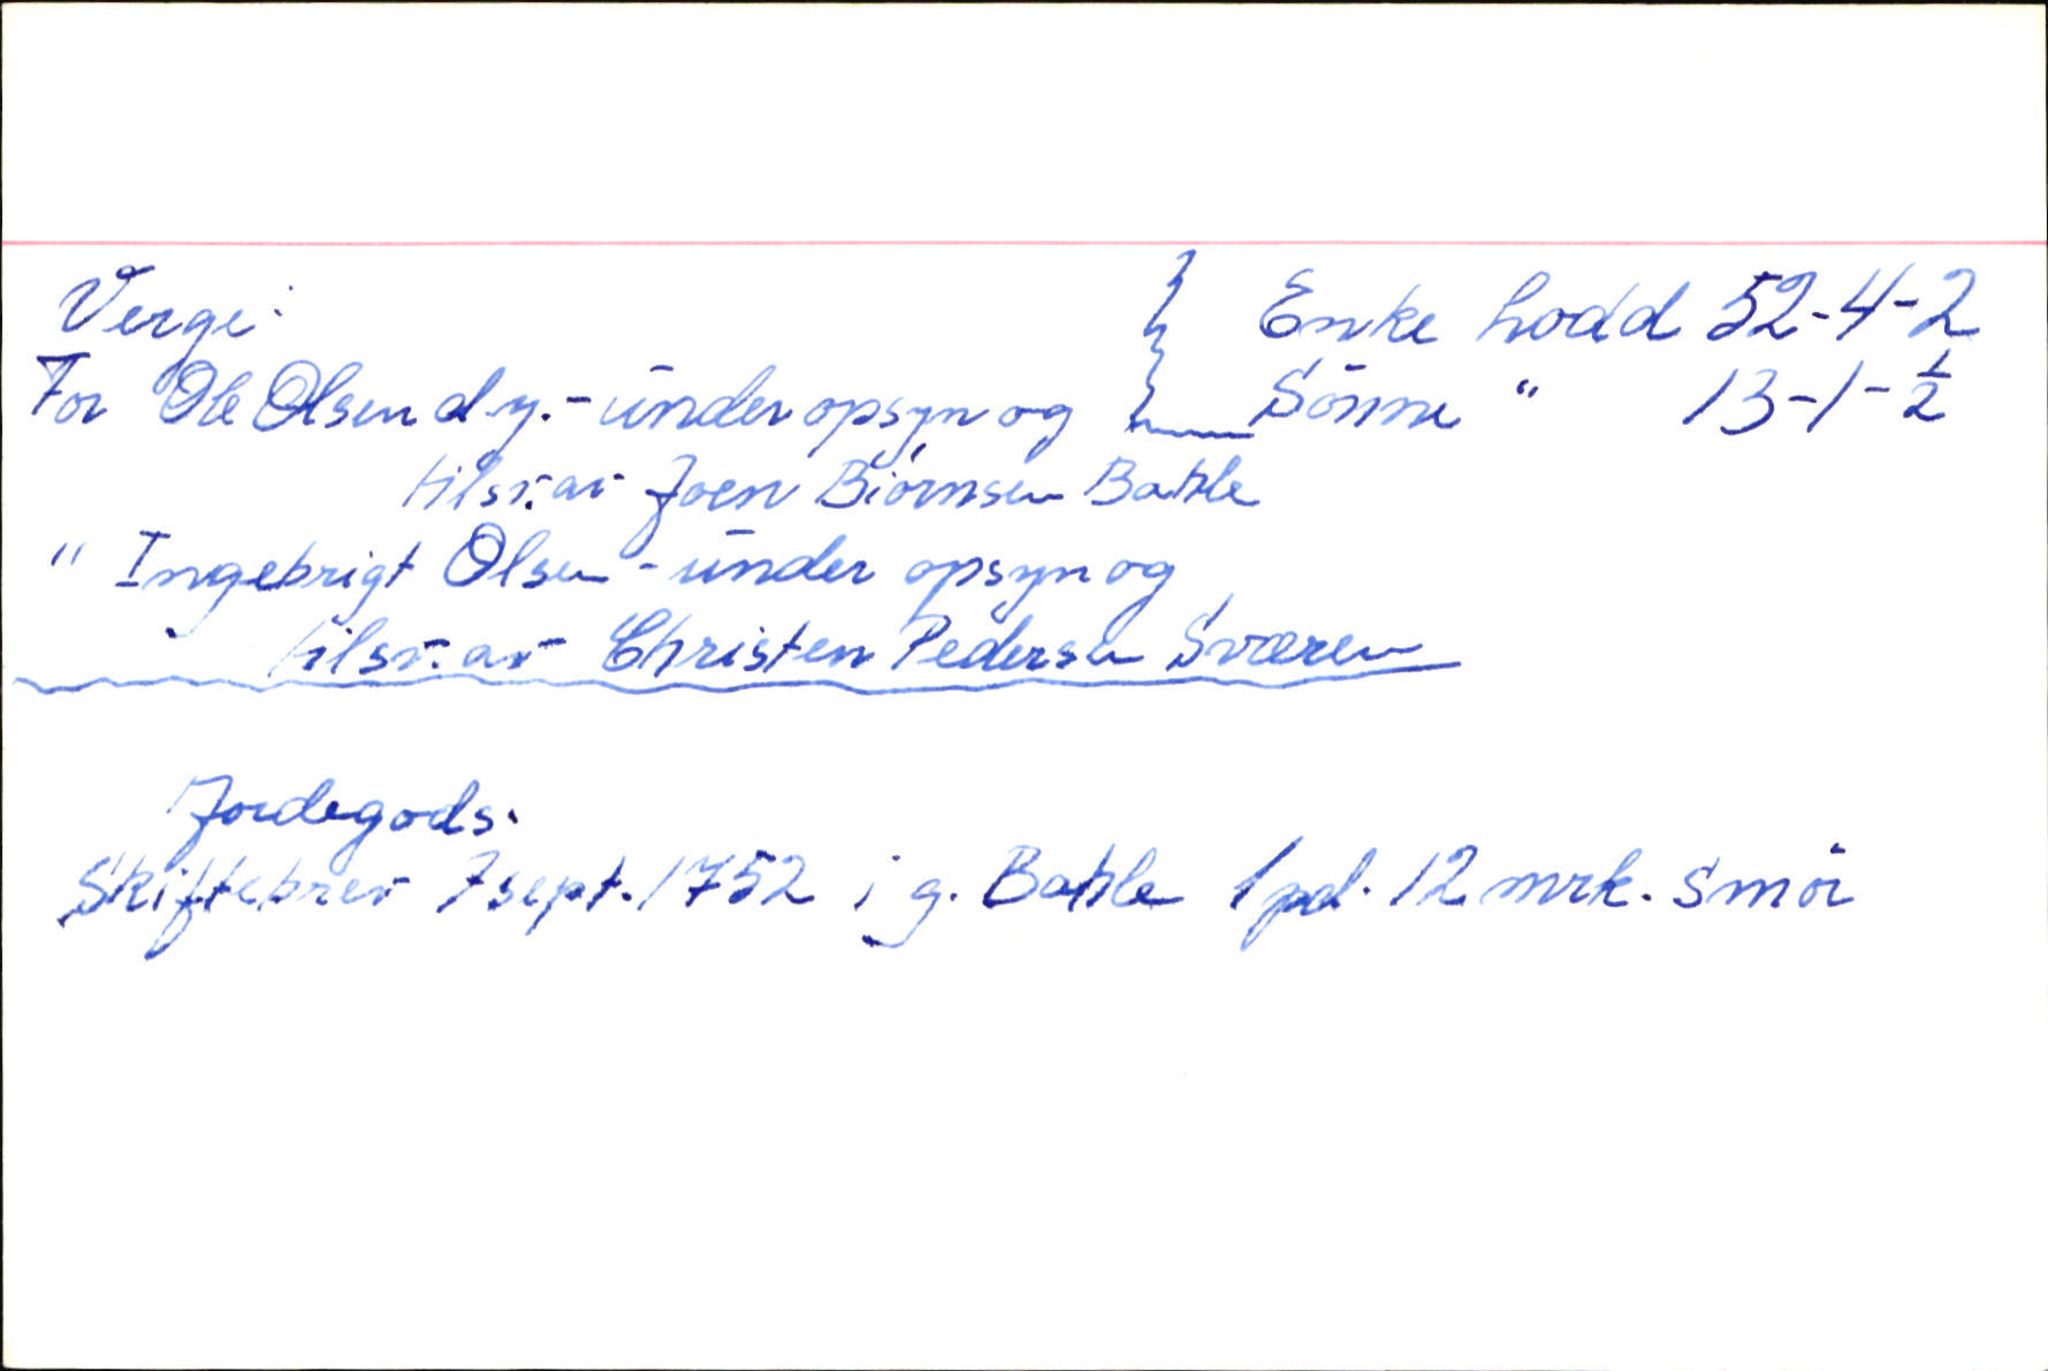 Verge:
For Ole Olsen d.y. - under opsyn og
tilsv. av Joen Biörnsen Bahle
" Ingebrigt Olsen - under opsyn og
tilsv. av Christen Pedersen Sværen
} Enke lodd 52-4-2
Sönne " 13-1-½
Jordegods.
Skiftebrev 7 sept. 1752 i g. Bahle 1 pd. 12 mrk. smör